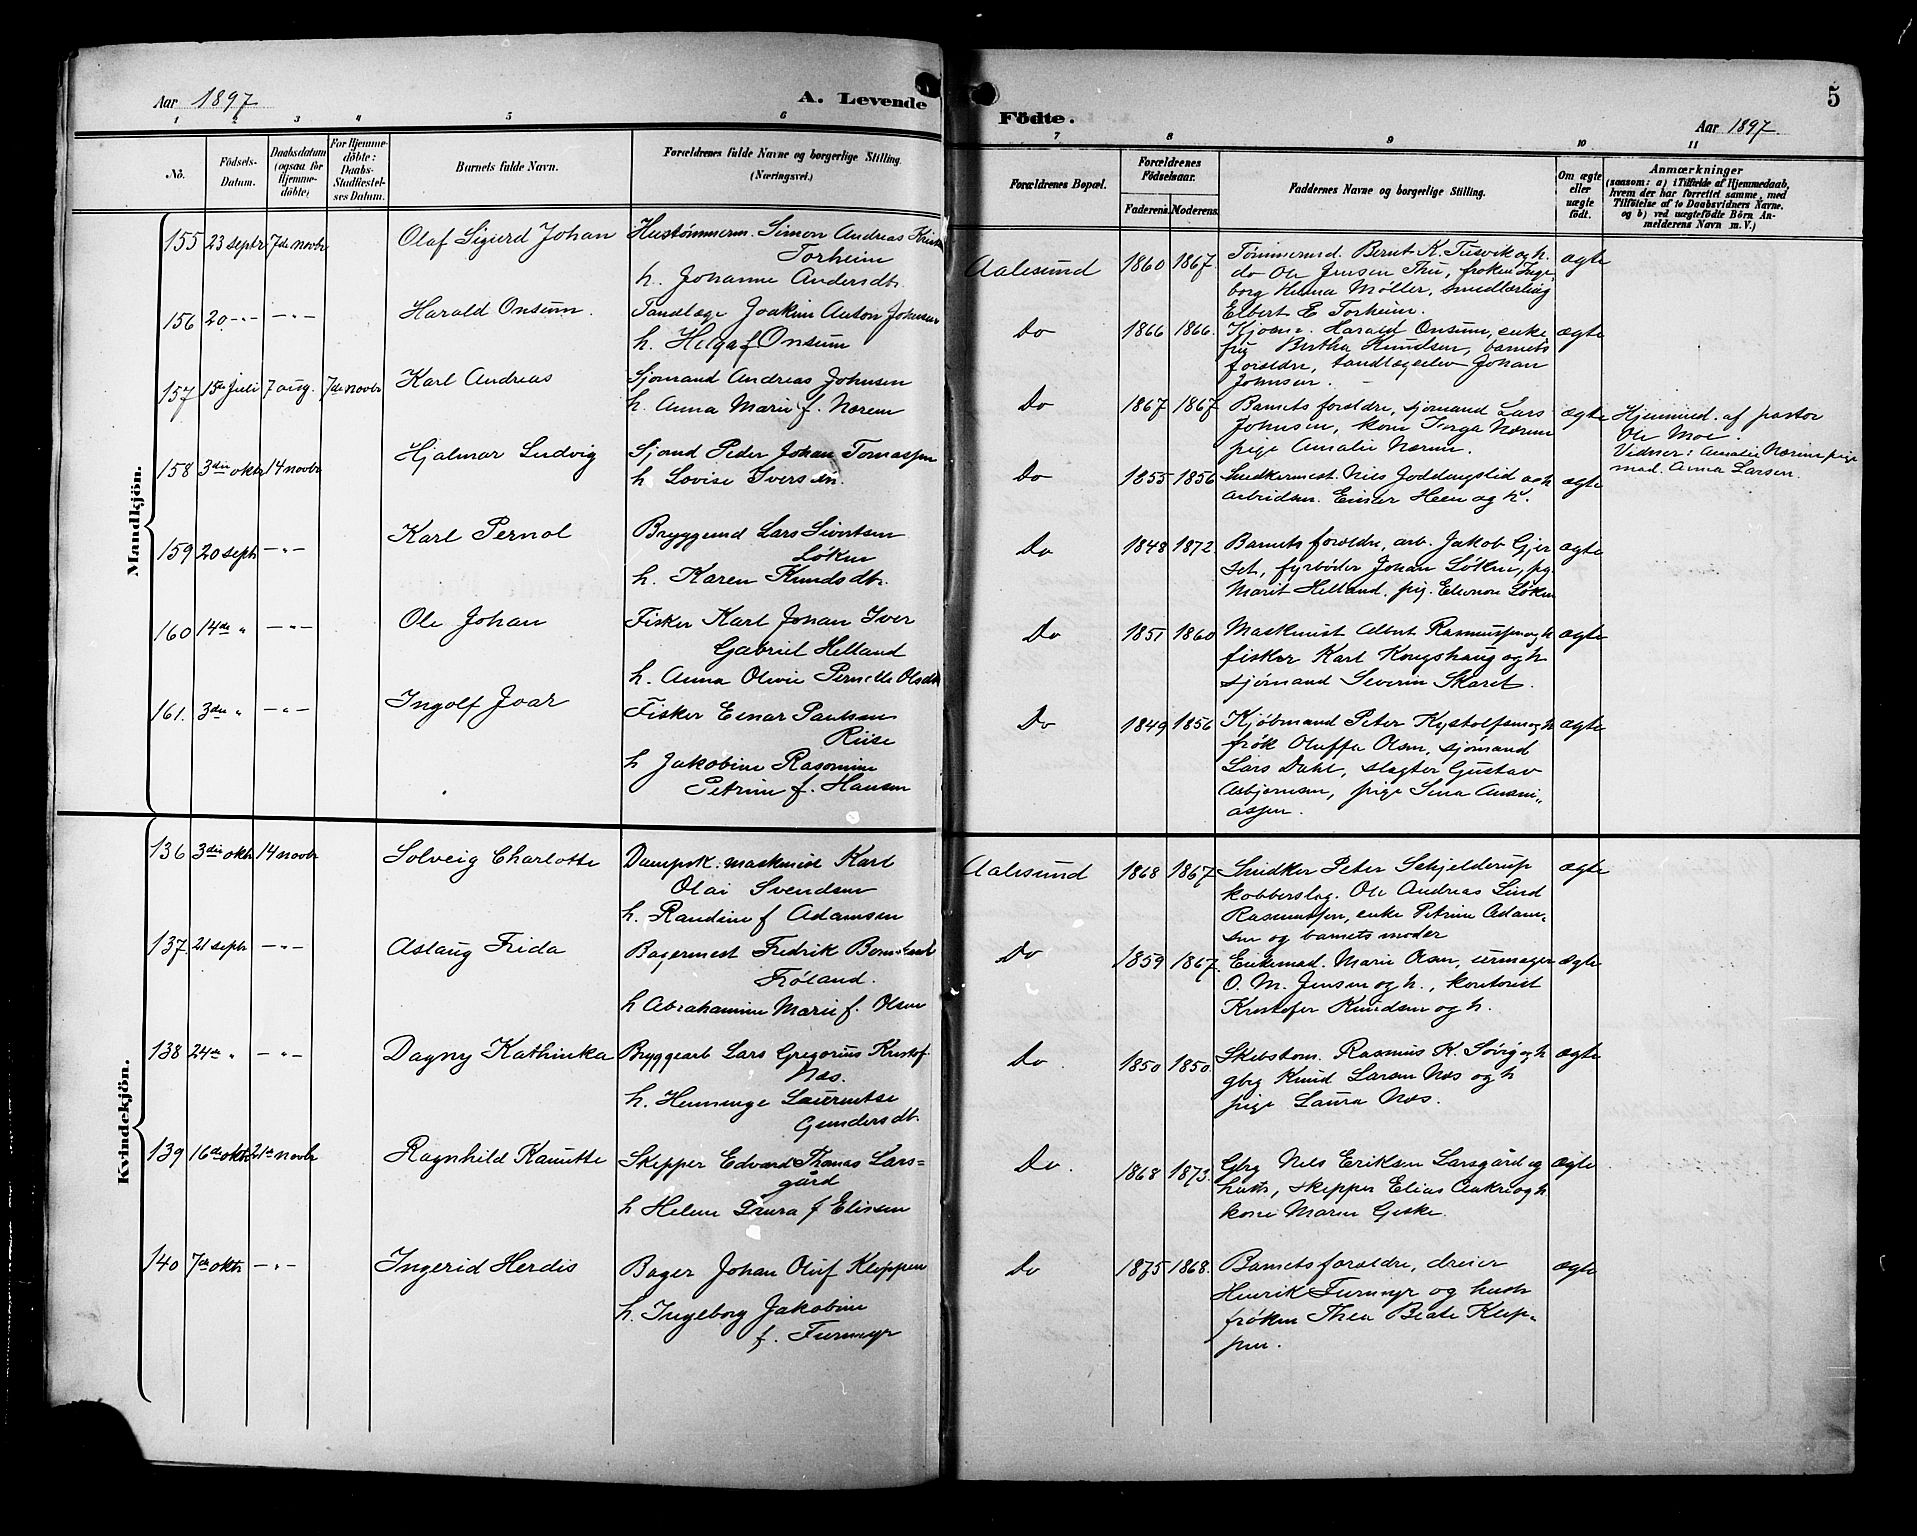 Aar 1897
A. Levende
Födte.
Aar 1897
5
1 2 3 4 5 6
7 8 9 10 11
No.
Födsels-Datum.
Daabsdatum (ogsaa for Hjemme-döbte)
For Hjemme-döbte: Daabs-Stadfæstel-ses Datum.
Barnets fulde Navn.
Forældrenes fulde Navne og borgerlige Stilling.
(Næringsvei.)
Forældrenes Bopæl.
Forældrenes Födselsaar.
Faderens. Moderens.
Faddernes Navne og borgerlige Stilling.
Om ægte eller uægte födt.
Anmærkninger
(saasom: a) i Tilfælde af Hjemmedaab,
hvem der har forrettet samme, med
Tilföielse af to Daabsvidners Navne.
og b) ved uægtefödte Börn An-
melderens Navn m. V.)
Mandkjön.
155 23 septr 7de novbr Olaf Sigurd Johan
Hustømmerm. Simon Andreas
Torheim
h. Johanne Andersdt.
Aalesund 1860 1867.
Tømmermd. Bernt K. Tusvik og h.
do Ole Jensen Thu, frøken Inge
borg Helena Møller, smedlærling
Elbert E Torheim.
ægte
156 20 -"- -"- Harald Onsum.
Tandlæge Joakim Anton Johnsen
h. Helga f Onsum
Do 1866 1866.
Harald Onsum, enke
Bertha Knudsen, barnets
forældre, tandlægeelev Johan
Johnsen.
ægte
157 15de juli 7 aug. 7de novbr Karl Andreas
Sjømand Andreas Johnsen
h. Anna Marie f. Nærem
Do 1867 1867
Barnets forældre, sjømand Lars
Johnsen, kone Inga Nærem
pige Amalie Nærem.
ægte
Hjemmed. af pastor
Ole Moe.
Vidner: Amalie Nærem pige
mad. Anna Larsen.
158 3die oktr 14 novbr Hjalmar Ludvig
Sjømd Peder Johan Tomassen
h Lovise Iversdn.
Do 1855 1856
Snedkermest. Nils Joddangslid og h
Arbeidsm. Einar Heen og h.
ægte
159 20 septr -"- Karl Pernol
Bryggemd Lars Sivertsen
Løken
h. Karen Knudsdt.
Do 1848 1872.
Barnets forældre, arb. Jakob Gjer
set, fyrbøder Johan Løken, pg.
Marit Helland. pig. Eleonore Løken
ægte
160 14de " -"- Ole Johan
Fisker Karl Johan Iver
Gabriel Helland
h. Anna Olivie Pernille Olsdt
Do 1851 1860
Maskinist Albert Rasmussen og h
fisker Karl Kongshaug og h
sjømand Severin Skaret.
ægte
161. 3die " -"- Ingolf Joar
Fisker Einar Paulsen
Riise
h Jakobine Rasmine
Petrine f. Hansen
Do 1849 1856
Kjøbmand Peter Kystolfsen og h
frøk Oluffa Olsen, sjømand
Lars Dahl, slagter Gustav
Asbjørnsen, pige Sina Ananiassen.
ægte
Kvindekjön.
136 3die oktr 14 novbr Solveig Charlotte
Dampsk. maskinist Karl
Olai Svendsen
h. Randine f Adamsen
Aalesund 1868 1867
Snedker Peter Schjelderup
kobberslag. Ole Andreas Lind
Rasmussen, enke Petrine Adam-
sen og barnets moder
ægte
137. 21 septr -"- Aslaug Frida
Bagermest Fredrik
Frøland.
h Abrahamine Marie f. Olsen
Do 1859 1867.
Enkemad. Marie Olsen, urmager
O. M. Jensen og h., kontorist
Kristofer Knudsen og h.
ægte
138 24de " -"- Dagny Kathinka
Bryggearb Lars Gregorius Kristof.
Næs.
h. Henninge Lauentse
Gundersdt.
Do 1850 1850.
Skibstøm. Rasmus K. Søvig og h
gbrg Knud Larsen Næs og h
pige Laura Næs.
ægte
139 16de oktr 21de novbr Ragnhild Kanutte
Skipper Edvard Thomas Lars-
gård
h Helene Laura f Elissen
Do. 1868 1873.
Gbrg Nils Eriksen Larsgård og
hust., skipper Elias Aakre og h
kone Maren Giske.
ægte
140 7de oktr -"- Ingerid Herdis
Bager Johan Oluf Kleppen
h. Ingeborg Jakobine
f. Furmyr
Do 1875 1868.
Barnets forældre, dreier
Henrik Furmyr og hust
frøken Thea Beate Klep-
pen.
ægte